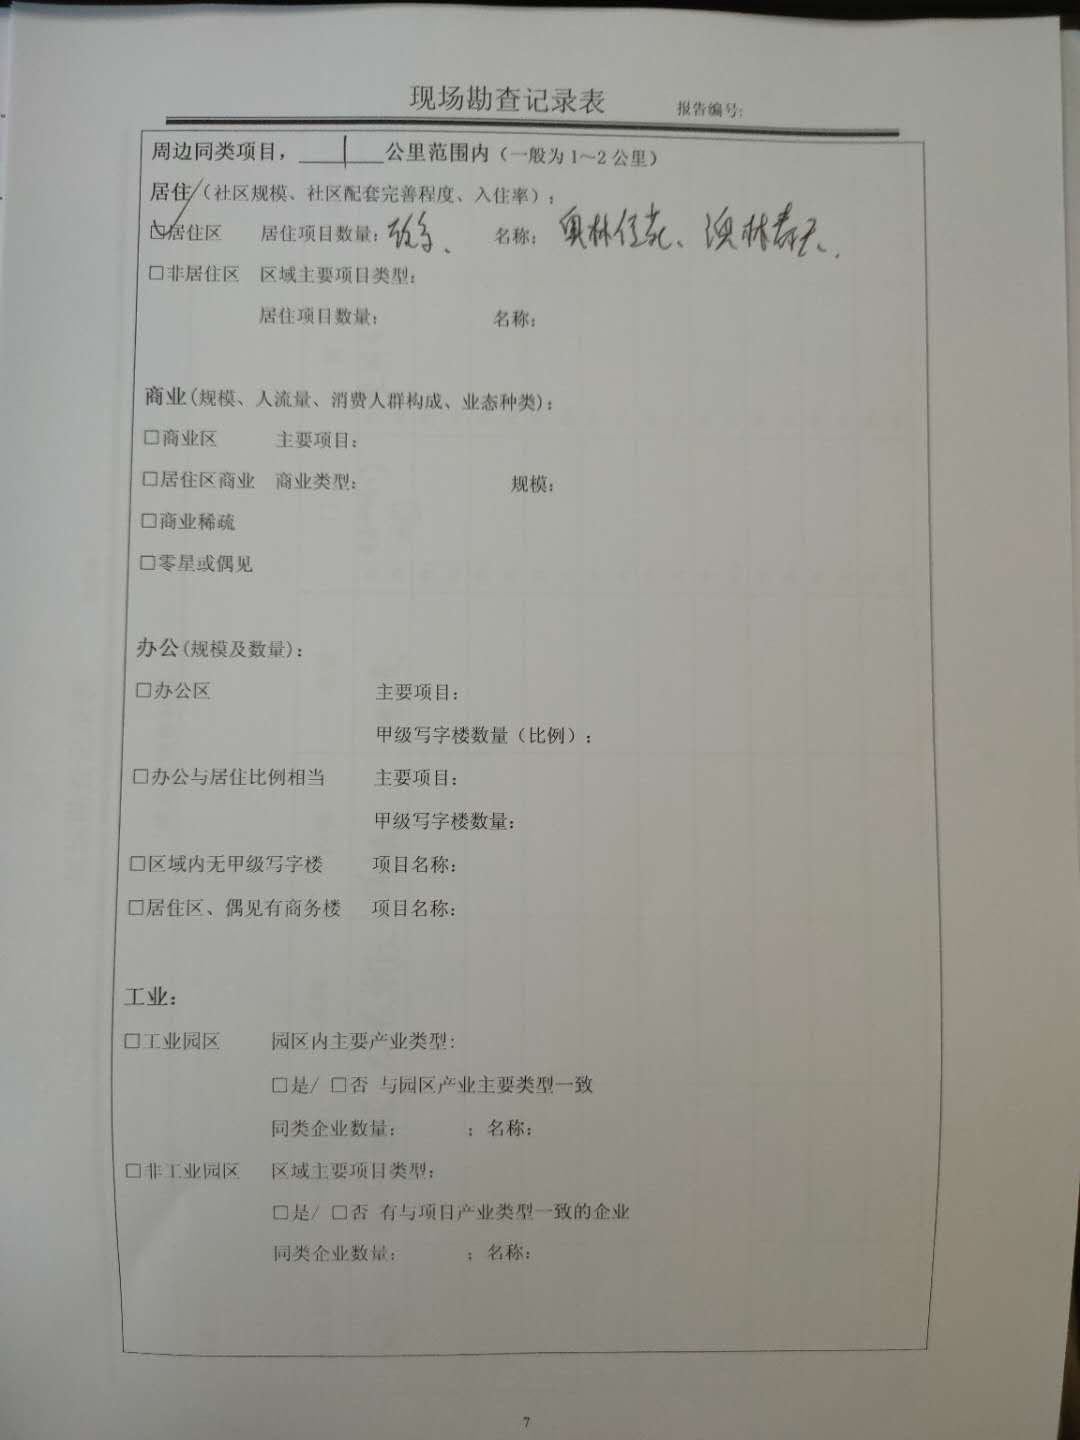 现场勘查记录表 报告编号:
周边同类项目，1公里范围内（一般为1～2公里）
居住（社区规模、社区配套完善程度、入住率）；
☑居住区 居住项目数量：较多、 名称：奥林佳苑、澳林春天、
□非居住区 区域主要项目类型：
居住项目数量； 名称；
商业(规模、人流量、消费人群构成、业态种类)；
□商业区 主要项目：
□居住区商业 商业类型： 规模：
□商业稀疏
□零星或偶见
办公(规模及数量)：
□办公区 主要项目：
甲级写字楼数量（比例）：
□办公与居住比例相当 主要项目：
甲级写字楼数量：
□区域内无甲级写字楼 项目名称：
□居住区、偶见有商务楼 项目名称：
工业：
□工业园区 园区内主要产业类型:
□是/ □否 与园区产业主要类型一致
同类企业数量： ；名称：
□非工业园区 区域主要项目类型：
□是/ □否 有与项目产业类型一致的企业
同类企业数量： ；名称：
7